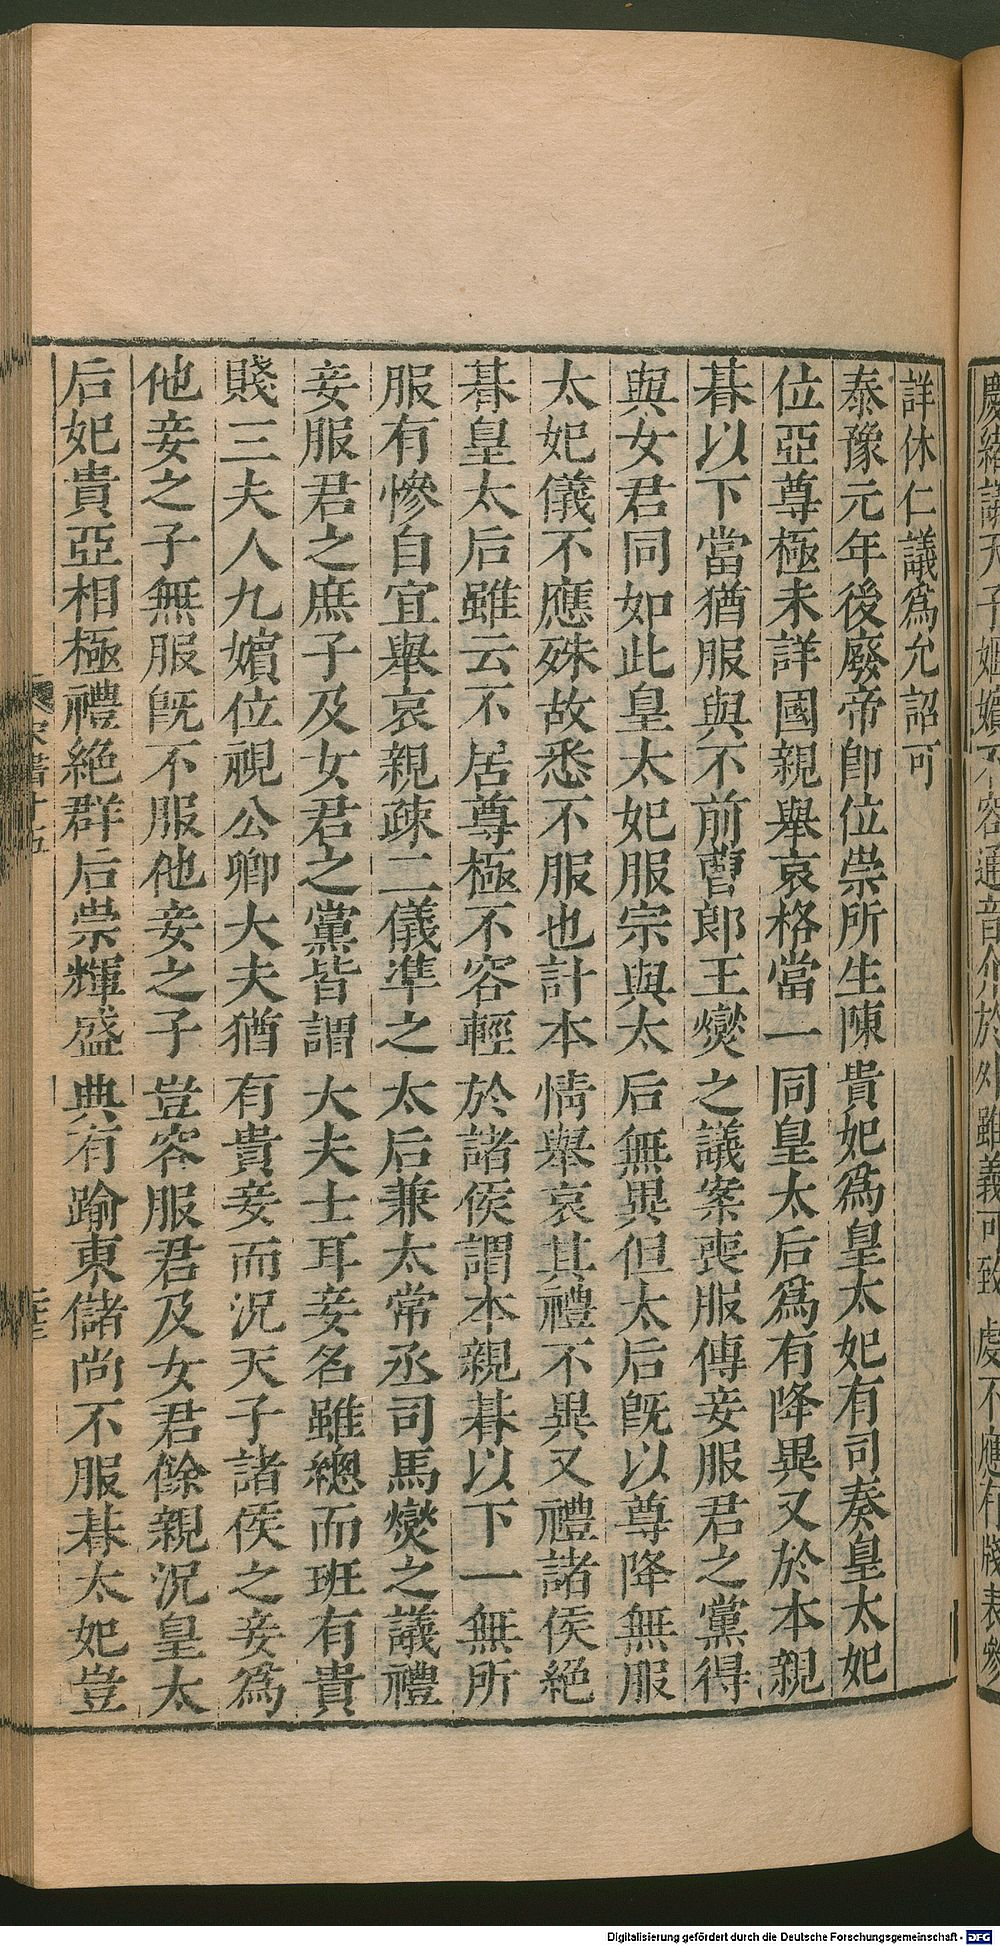 詳休仁議爲允詔可
泰豫元年後廢帝卽位崇所生陳貴妃爲皇太妃有司奏皇太妃
位亞尊極未詳國親舉哀格當一同皇太后爲有降異又於本親
朞以下當猶服與不前曹郎王燮之議案喪服傳妾服君之黨得
與女君同如此皇太妃服宗與太后無異但太后旣以尊降無服
太妃儀不應殊故悉不服也計本情舉哀其禮不異又禮諸侯絕
朞皇太后雖云不居尊極不容輕於諸侯謂本親朞以下一無所
服有慘自宜舉哀親疎二儀準之太后兼太常丞司馬燮之議禮
妾服君之庶子及女君之黨皆謂大夫士耳妾名雖總而班有貴
賤三夫人九嬪位視公卿大夫猶有貴妾而況天子諸侯之妾爲
他妾之子無服旣不服他妾之子豈容服君及女君餘親況皇太
后妃貴亞相極禮絕群后崇輝盛典有踰東儲尚不服朞太妃豈
Digitalisierung gefördert durch die Deutsche Forschungsgemeinschaft - DFG